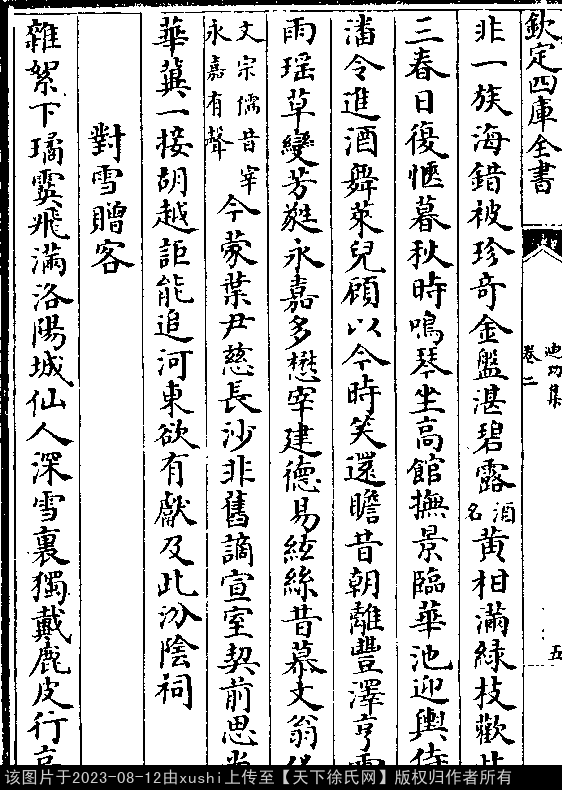 欽定四庫全書
迪功集
卷二
五
非一族海錯被珍奇金盤湛碧露酒名黄柑滿緑枝歡
三春日復愜暮秋時鳴琴坐高館撫景臨華池迎輿侍
潘令進酒舞萊兒顧以今時笑還瞻昔朝離豐澤亨
雨瑶草變芳蕤永嘉多懋宰建德易絃絲昔慕文翁
文宗儒昔宰永嘉有聲今蒙葉尹慈長沙非舊謫宣室契前思
華冀一接胡越詎能追河東欲有獻及此汾陰祠
對雪贈客
雜絮下璚霙飛滿洛陽城仙人深雪裏獨戴鹿皮行
该图片于2023-08-12由xushi上传至【天下徐氏网】版权归作者所有